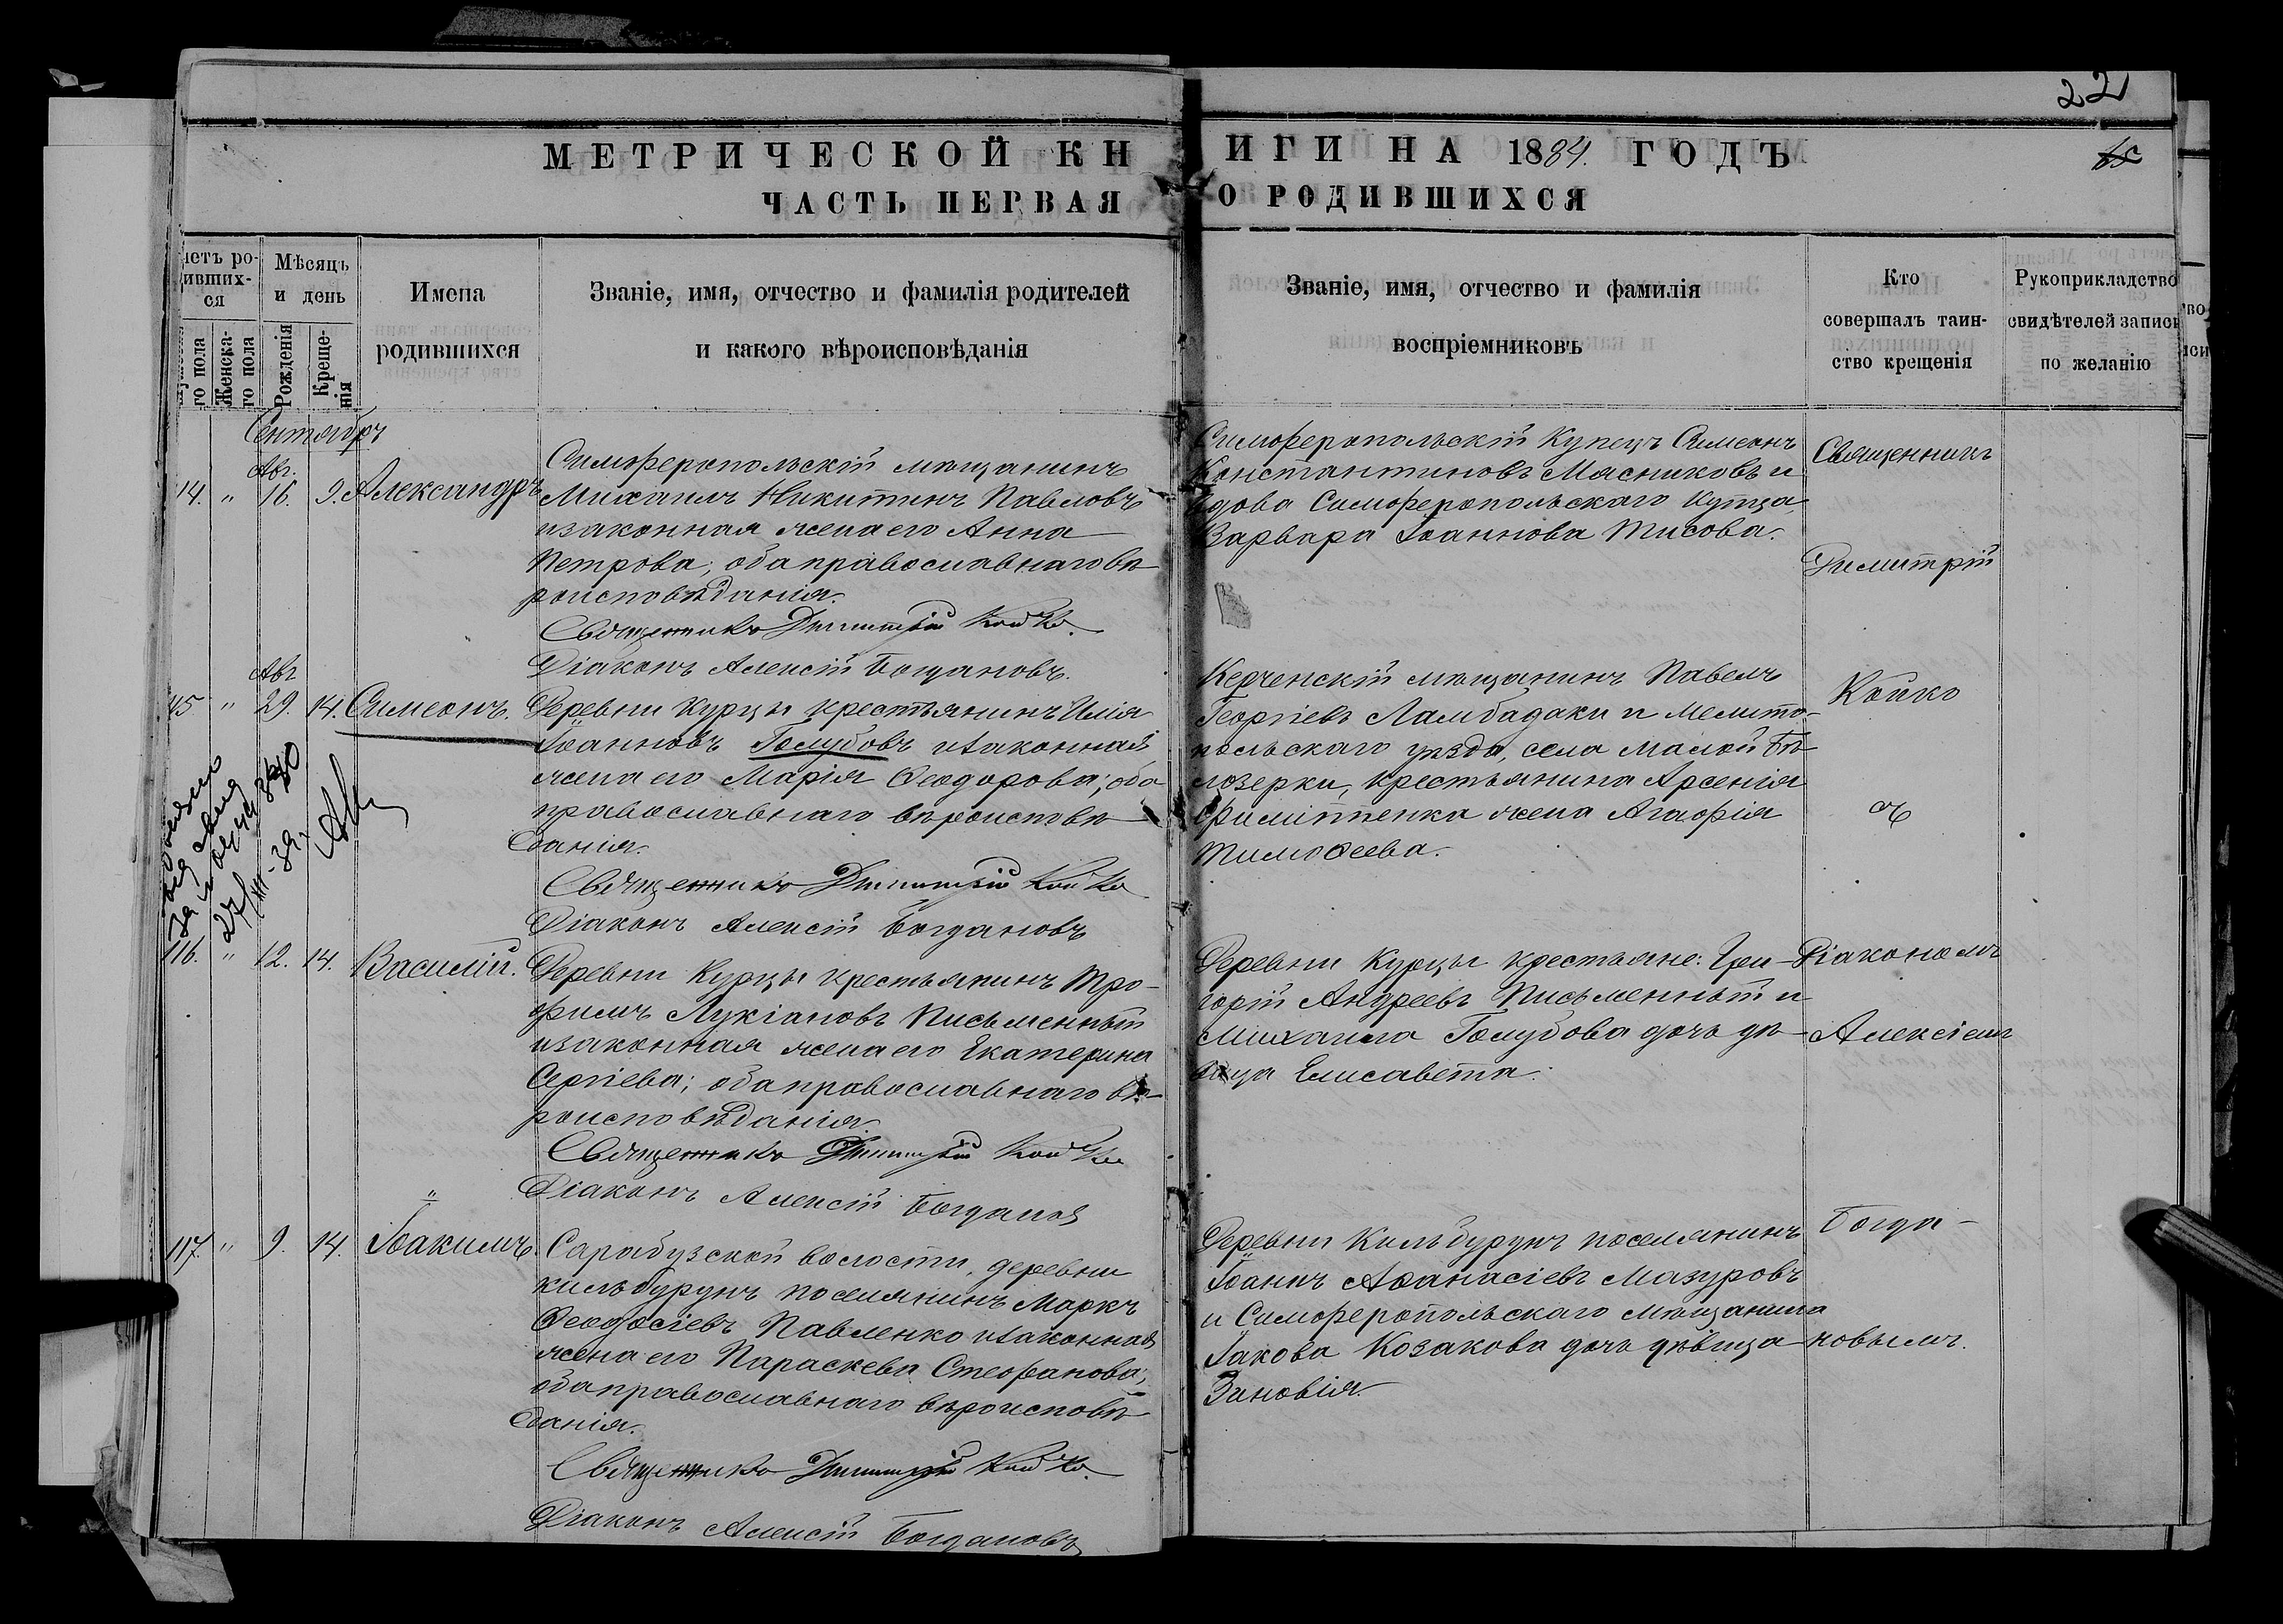 22
МЕТРИЧЕСКОЙ КНИГИ НА 1884. ГОДЪ
ЧАСТЬ ПЕРВАЯ О РОДИВШИХСЯ
четъ ро-
дивших-
ся
го пола
Женска-
го пола
Мѣсяцъ
и день
Рожденія
Креще-
нія
Имена
родившихся
Званіе, имя, отчество и фамилія родителей
и какого вѣроисповѣданія
Званіе, имя, отчество и фамилія
воспріемниковъ
Кто
совершалъ таин-
ство крещенія
Рукоприкладство
свидѣтелей записи
по желанію
Сентябрь
Авг.
14. " 16. 9. Александръ
Симферопольскій мѣщанинъ
Михаилъ Никитинъ Павловъ
и законная жена его Анна
Петрова; оба православнаго вѣ-
роисповѣданія.
Священникъ Димитрій Койко.
Діаконъ Алексій Богдановъ.
Симферопольскій Купецъ Симеонъ
Константиновъ Мясниковъ и
вдова Симферопольскаго Купца,
Варвара Іоаннова Тисова.
Священникъ
Димитрій
Авг
45 " 29. 14. Симеонъ.
Деревни Курцы крестьянинъ Илія
Іоанновъ Голубовъ и законная
жена его Марія Ѳеодорова; оба
православнаго вѣроисповѣ-
данія.
Священникъ Димитрій Койко
Діаконъ Алексій Богдановъ
Керченскій мѣщанинъ Павелъ
Георгіевъ Ламбадаки и Мелито-
польскаго уѣзда, села Малой Бѣ-
лозерки, крестьянина Арсенія
Филиппенка жена Агафія
Тимоѳеева.
Койко
съ
116. " 12. 14. Василій.
Деревни Курцы крестьянинъ Тро-
фимъ Лукіановъ Письменный
и законная жена его Екатерина
Сергіева; оба православнаго вѣ-
роисповѣданія.
Священникъ Димитрій Койко
Діаконъ Алексій Богдановъ
Деревни Курцы крестьяне: Гри-
горій Андреевъ Письменный и
Михаила Голубова дочь дѣ-
вица Елисавета.
Діакономъ
Алексіемъ
117. " 9. 14. Іоакимъ.
Сарабузской волости, деревни
Кильбурунъ поселянинъ Маркъ
Ѳеодосіевъ Павленко и законная
жена его Параскева Стефанова;
оба православнаго вѣроисповѣ-
данія.
Священникъ Димитрій Койко.
Діаконъ Алексій Богдановъ
Деревни Кильбурунъ поселянинъ
Іоаннъ Аѳанасіевъ Мазуровъ
и Симферопольскаго мѣщанина
Іакова Козакова дочь дѣвица
Зиновія.
Богда-
новымъ.